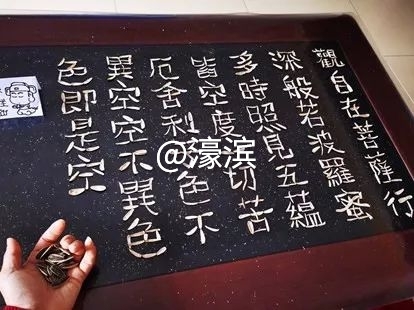 觀自在菩薩行
深般若波羅蜜
多時照見五蘊
皆空度切苦
厄舍利色不
異空空不異色
色即是空
@濠滨